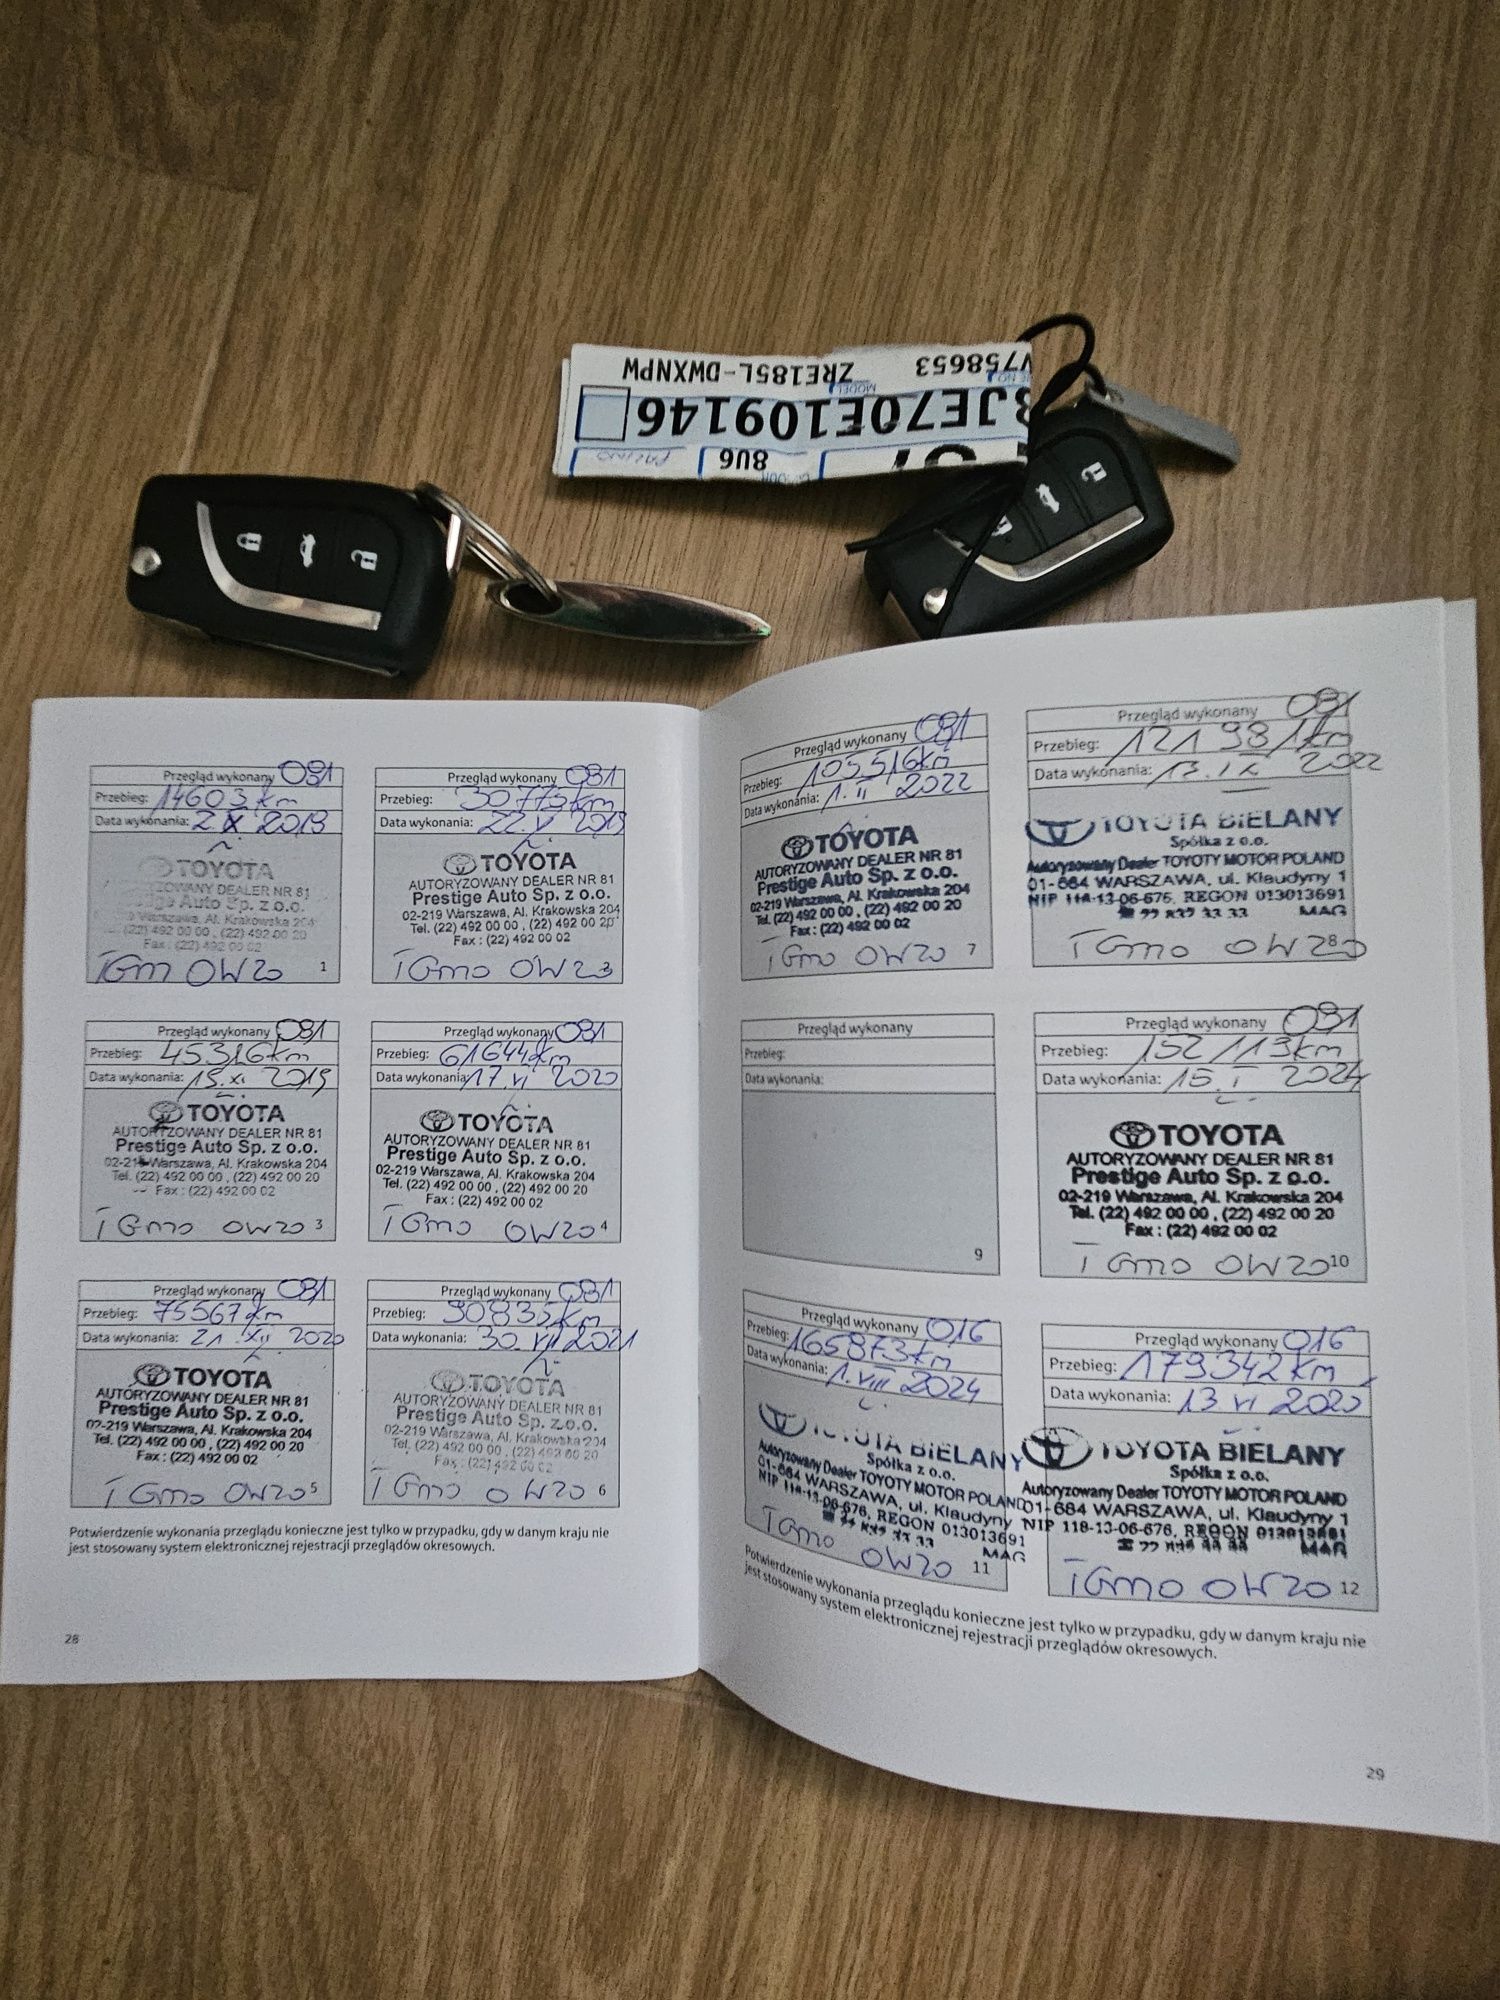 ZRE185L-DWXNPW
V758653
MODEL
3JE70E109146
8U6
Przegląd wykonany 081
Przebieg: 14603 km
Data wykonania: 2.X 2018
TOYOTA
DEALER NR 81
Auto Sp. z o.o.
Warszawa, Al. Krakowska 204
(22) 492 00 00, (22) 492 00 20
Fax: (22) 492 00 02
TGMO 0W20 1
Przegląd wykonany 081
Przebieg: 30773 km
Data wykonania: 22.V 2019
TOYOTA
AUTORYZOWANY DEALER NR 81
Prestige Auto Sp. z o.o.
02-219 Warszawa, Al. Krakowska 204
Tel. (22) 492 00 00, (22) 492 00 20
Fax: (22) 492 00 02
TGMO 0W20
Przegląd wykonany 081
Przebieg: 45316 km
Data wykonania: 15.XI 2019
TOYOTA
AUTORYZOWANY DEALER NR 81
Prestige Auto Sp. z o.o.
02-219 Warszawa, Al. Krakowska 204
Tel. (22) 492 00 00, (22) 492 00 20
Fax: (22) 492 00 02
TGMO 0W20 3
Przegląd wykonany 081
Przebieg: 61644 km
Data wykonania: 17.VI 2020
TOYOTA
AUTORYZOWANY DEALER NR 81
Prestige Auto Sp. z o.o.
02-219 Warszawa, Al. Krakowska 204
Tel. (22) 492 00 00, (22) 492 00 20
Fax: (22) 492 00 02
TGMO 0W20 4
Przegląd wykonany 081
Przebieg: 75567 km
Data wykonania: 21.XII 2020
TOYOTA
AUTORYZOWANY DEALER NR 81
Prestige Auto Sp. z o.o.
02-219 Warszawa, Al. Krakowska 204
Tel. (22) 492 00 00, (22) 492 00 20
Fax: (22) 492 00 02
TGMO 0W20 5
Przegląd wykonany 081
Przebieg: 90835 km
Data wykonania: 30.VII 2021
TOYOTA
AUTORYZOWANY DEALER NR 81
Prestige Auto Sp. z o.o.
02-219 Warszawa, Al. Krakowska 204
Tel. (22) 492 00 00, (22) 492 00 20
Fax: (22) 492 00 02
TGMO 0W20 6
Potwierdzenie wykonania przeglądu konieczne jest tylko w przypadku, gdy w danym kraju nie
jest stosowany system elektronicznej rejestracji przeglądów okresowych.
28
Przegląd wykonany 081
Przebieg: 105516 km
Data wykonania: 1.II 2022
TOYOTA
AUTORYZOWANY DEALER NR 81
Prestige Auto Sp. z o.o.
02-219 Warszawa, Al. Krakowska 204
Tel. (22) 492 00 00, (22) 492 00 20
Fax: (22) 492 00 02
TGMO 0W20 7
Przegląd wykonany 081
Przebieg: 121981 km
Data wykonania: 13.IX 2022
TOYOTA BIELANY
Spółka z o.o.
Autoryzowany Dealer TOYOTY MOTOR POLAND
01-684 WARSZAWA, ul. Klaudyny 1
NIP 118-13-06-676, REGON 013013691
MAG
TGMO 0W20 8
Przegląd wykonany
Przebieg:
Data wykonania:
9
Przegląd wykonany 081
Przebieg: 152113 km
Data wykonania: 15.I 2024
TOYOTA
AUTORYZOWANY DEALER NR 81
Prestige Auto Sp. z o.o.
02-219 Warszawa, Al. Krakowska 204
Tel. (22) 492 00 00, (22) 492 00 20
Fax: (22) 492 00 02
TGMO 0W20 10
Przegląd wykonany 016
Przebieg: 165873 km
Data wykonania: 1.VIII 2024
TOYOTA BIELANY
Spółka z o.o.
Autoryzowany Dealer TOYOTY MOTOR POLAND
01-684 WARSZAWA, ul. Klaudyny 1
NIP 118-13-06-676, REGON 013013691
MAG
TGMO 0W20 11
Przegląd wykonany 016
Przebieg: 179342 km
Data wykonania: 13 VI 2020
TOYOTA BIELANY
Spółka z o.o.
Autoryzowany Dealer TOYOTY MOTOR POLAND
01-684 WARSZAWA, ul. Klaudyny 1
NIP 118-13-06-676, REGON 013013691
MAG
TGMO 0W20 12
Potwierdzenie wykonania przeglądu konieczne jest tylko w przypadku, gdy w danym kraju nie
jest stosowany system elektronicznej rejestracji przeglądów okresowych.
29